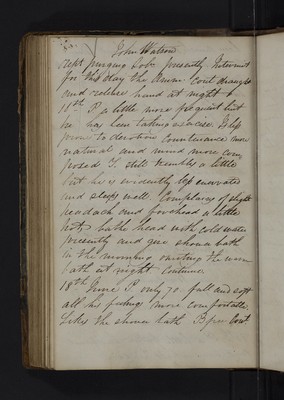 John Watson
kept purging Sobs presently Intermit
for this day the Amm Coil draught
and relieve hand at night
18th P a little more frequent but
he has been taking exercise. Is less
prone to decoction Countenance more
natural and mind more com
posed T still trembles a little
but he is evidently less enervated
and sleeps well. Complains of slight
headach and forehead a little
hot, bathe head with cold water
presently and give shower bath
in the morning omitting the warm
bath at night Continue
18th June P. only 70. full and soft
all his feelings more comfortable.
Likes the shower bath B free Cont.